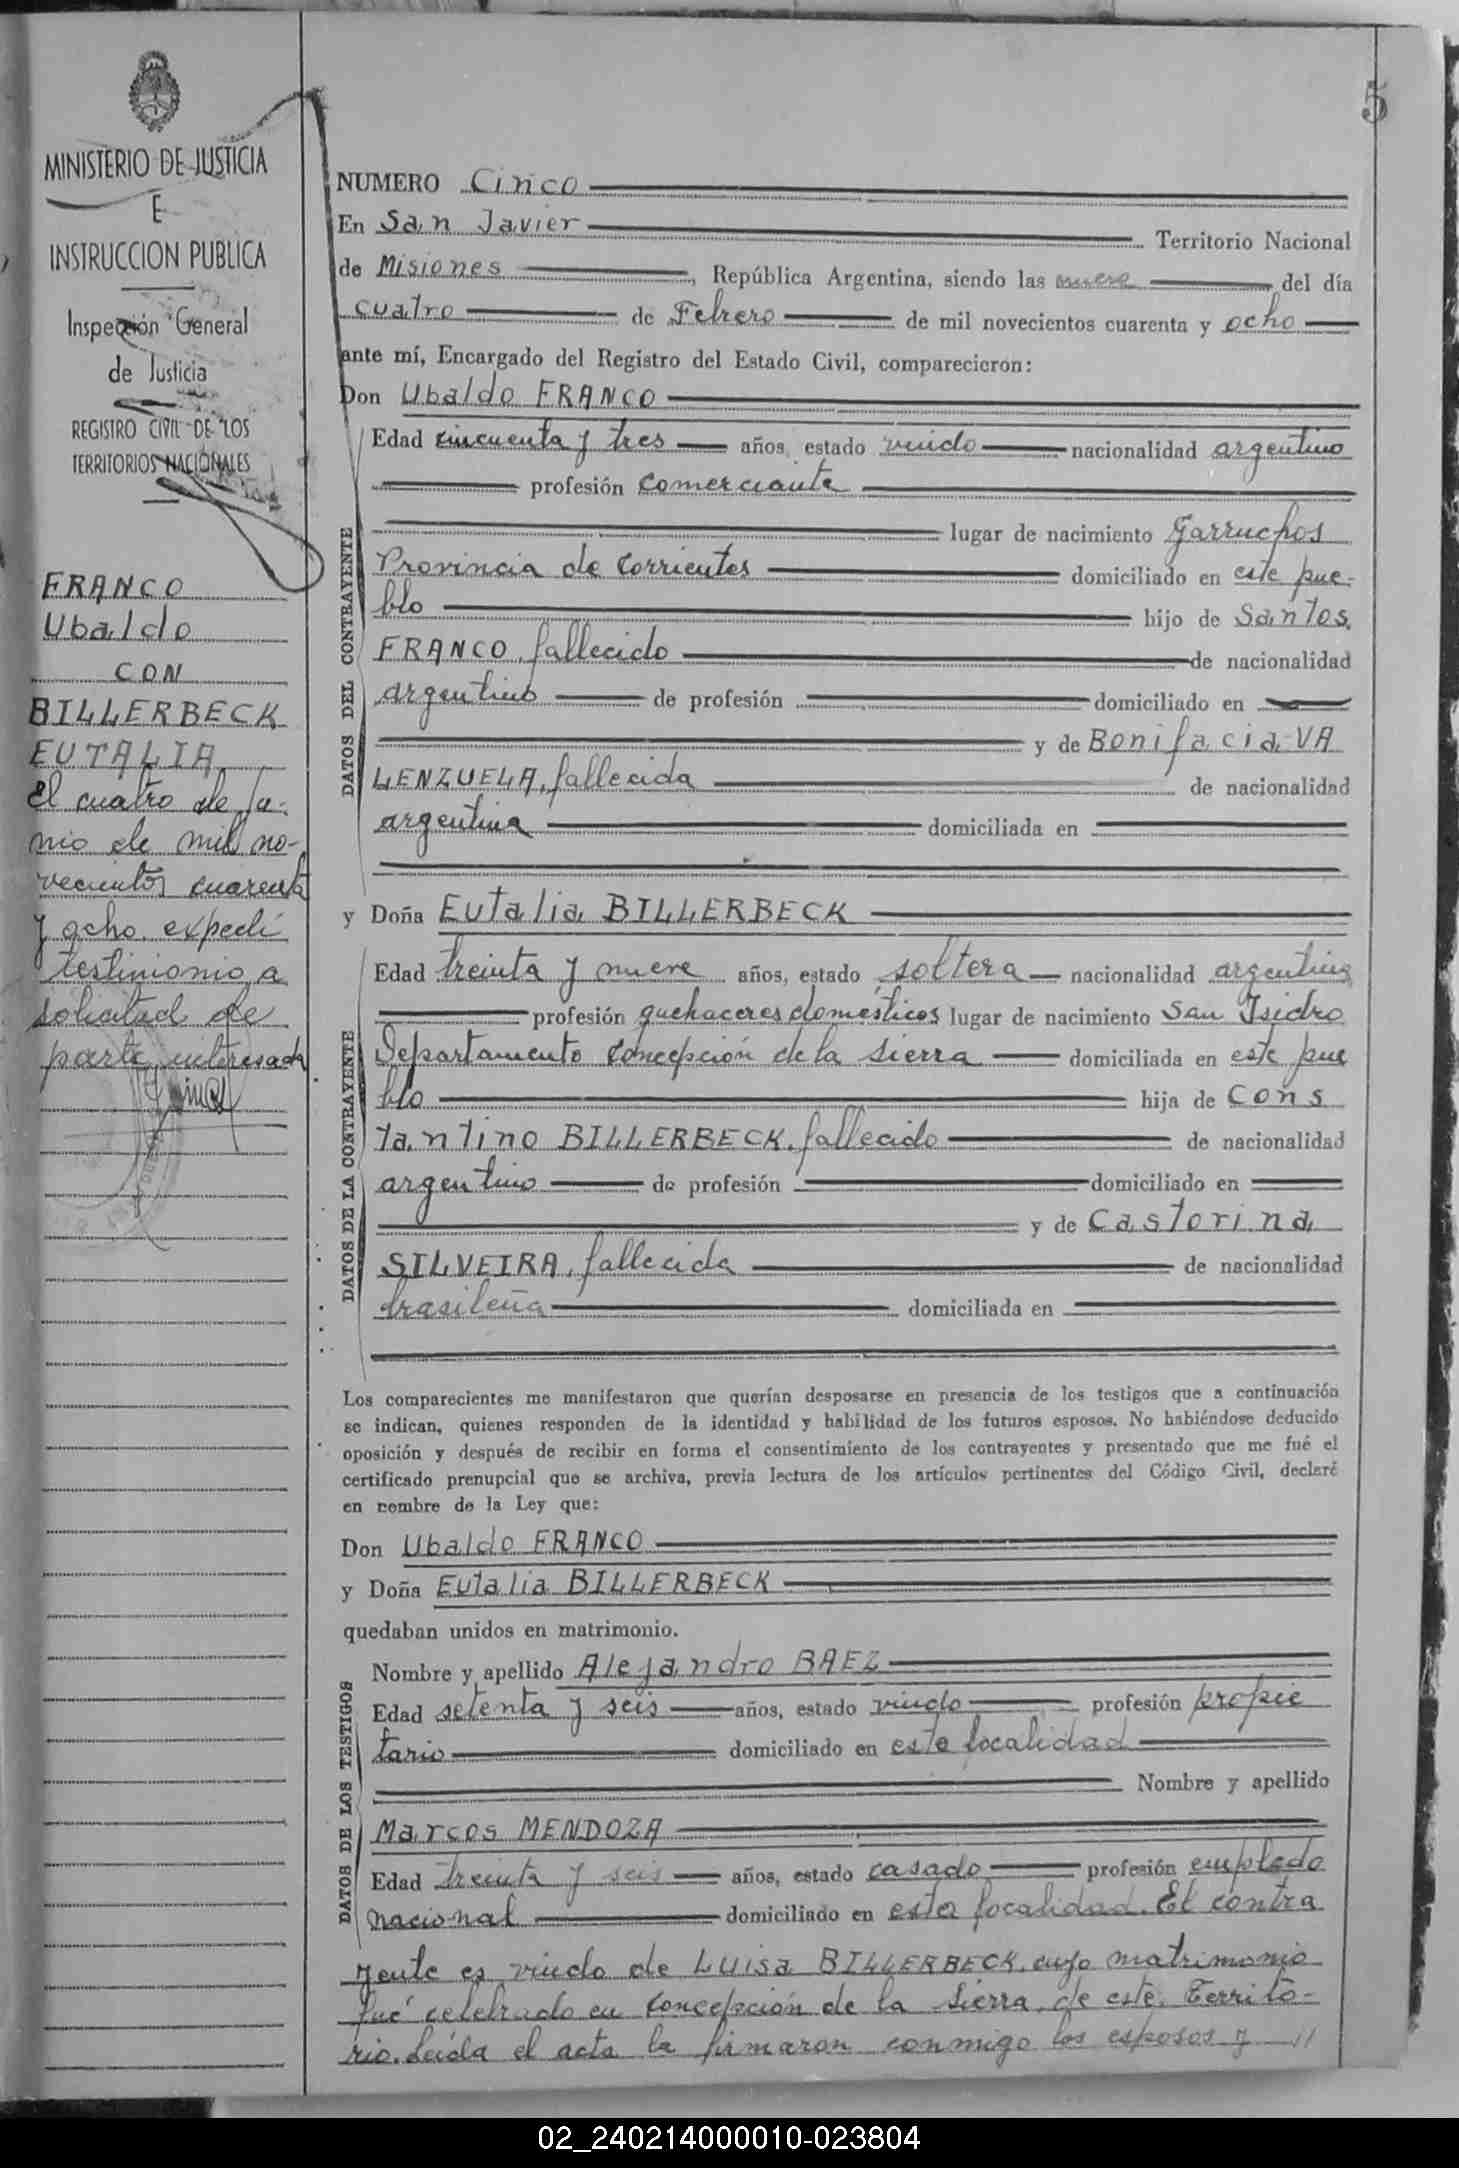 5
MINISTERIO DE JUSTICIA
E
INSTRUCCION PUBLICA
Inspección General
de Justicia
REGISTRO CIVIL DE LOS
TERRITORIOS NACIONALES
FRANCO
Ubaldo
CON
BILLERBECK
EUTALIA
El cuatro de ju-
nio de mil no-
vecientos cuarenta
y ocho expedí
testimonio a
solicitud de
parte interesada
NUMERO Cinco
En San Javier Territorio Nacional
de Misiones, República Argentina, siendo las nueve del día
cuatro de Febrero de mil novecientos cuarenta y ocho
ante mí, Encargado del Registro del Estado Civil, comparecieron:
Don Ubaldo FRANCO
DATOS DEL CONTRAYENTE
Edad cincuenta y tres años, estado viudo nacionalidad argentino
profesión comerciante
lugar de nacimiento Garruchos
Provincia de Corrientes domiciliado en este pue-
blo hijo de Santos
FRANCO, fallecido de nacionalidad
argentino de profesión domiciliado en
y de Bonifacia VA
LENZUELA, fallecida de nacionalidad
argentina domiciliada en
y Doña Eutalia BILLERBECK
DATOS DE LA CONTRAYENTE
Edad treinta y nueve años, estado soltera nacionalidad argentina
profesión quehaceres domésticos lugar de nacimiento San Isidro
Departamento Concepción de la Sierra domiciliada en este pue
blo hija de Cons
tantino BILLERBECK, fallecido de nacionalidad
argentino de profesión domiciliado en
y de Castorina
SILVEIRA, fallecida de nacionalidad
brasileña domiciliada en
Los comparecientes me manifestaron que querían desposarse en presencia de los testigos que a continuación
se indican, quienes responden de la identidad y habilidad de los futuros esposos. No habiéndose deducido
oposición y después de recibir en forma el consentimiento de los contrayentes y presentado que me fué el
certificado prenupcial que se archiva, previa lectura de los artículos pertinentes del Código Civil, declaré
en nombre de la Ley que:
Don Ubaldo FRANCO
y Doña Eutalia BILLERBECK
quedaban unidos en matrimonio.
DATOS DE LOS TESTIGOS
Nombre y apellido Alejandro BAEZ
Edad setenta y seis años, estado viudo profesión propie
tario domiciliado en esta localidad
Nombre y apellido
Marcos MENDOZA
Edad treinta y seis años, estado casado profesión empledo
nacional domiciliado en esta localidad. El contra
yente es viudo de Luisa BILLERBECK, cuyo matrimonio
fué celebrado en Concepción de la Sierra, de este Territo-
rio. Leída el acta la firmaron conmigo los esposos y //
02_240214000010-023804